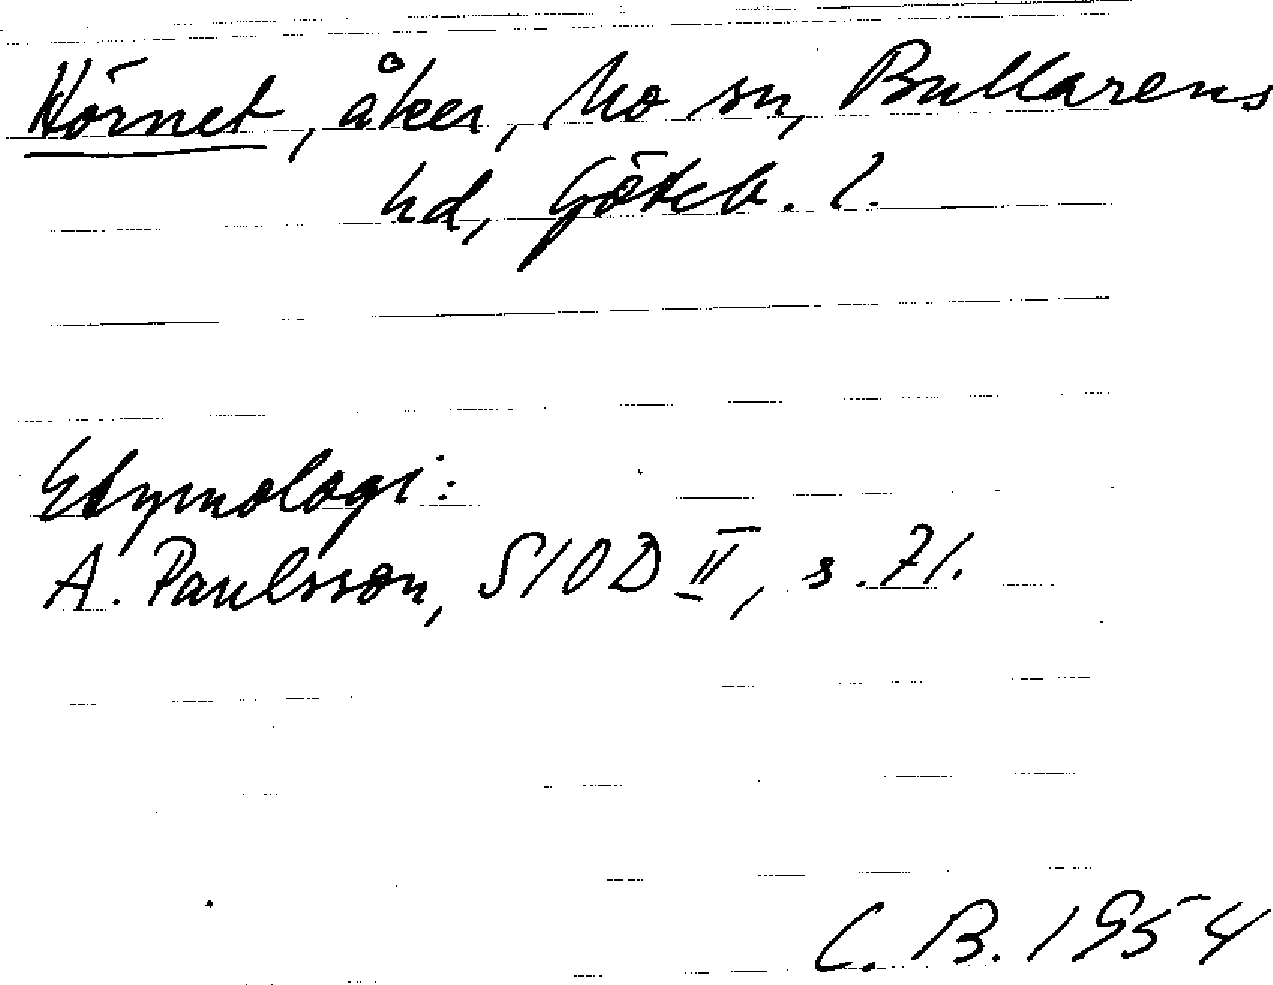 Hörnet, åker, Mo sn, Bullarens
hd, Göteb. l.
Etymologi:
A. Paulsson, SIOD II, s. 71.
C. B. 1954